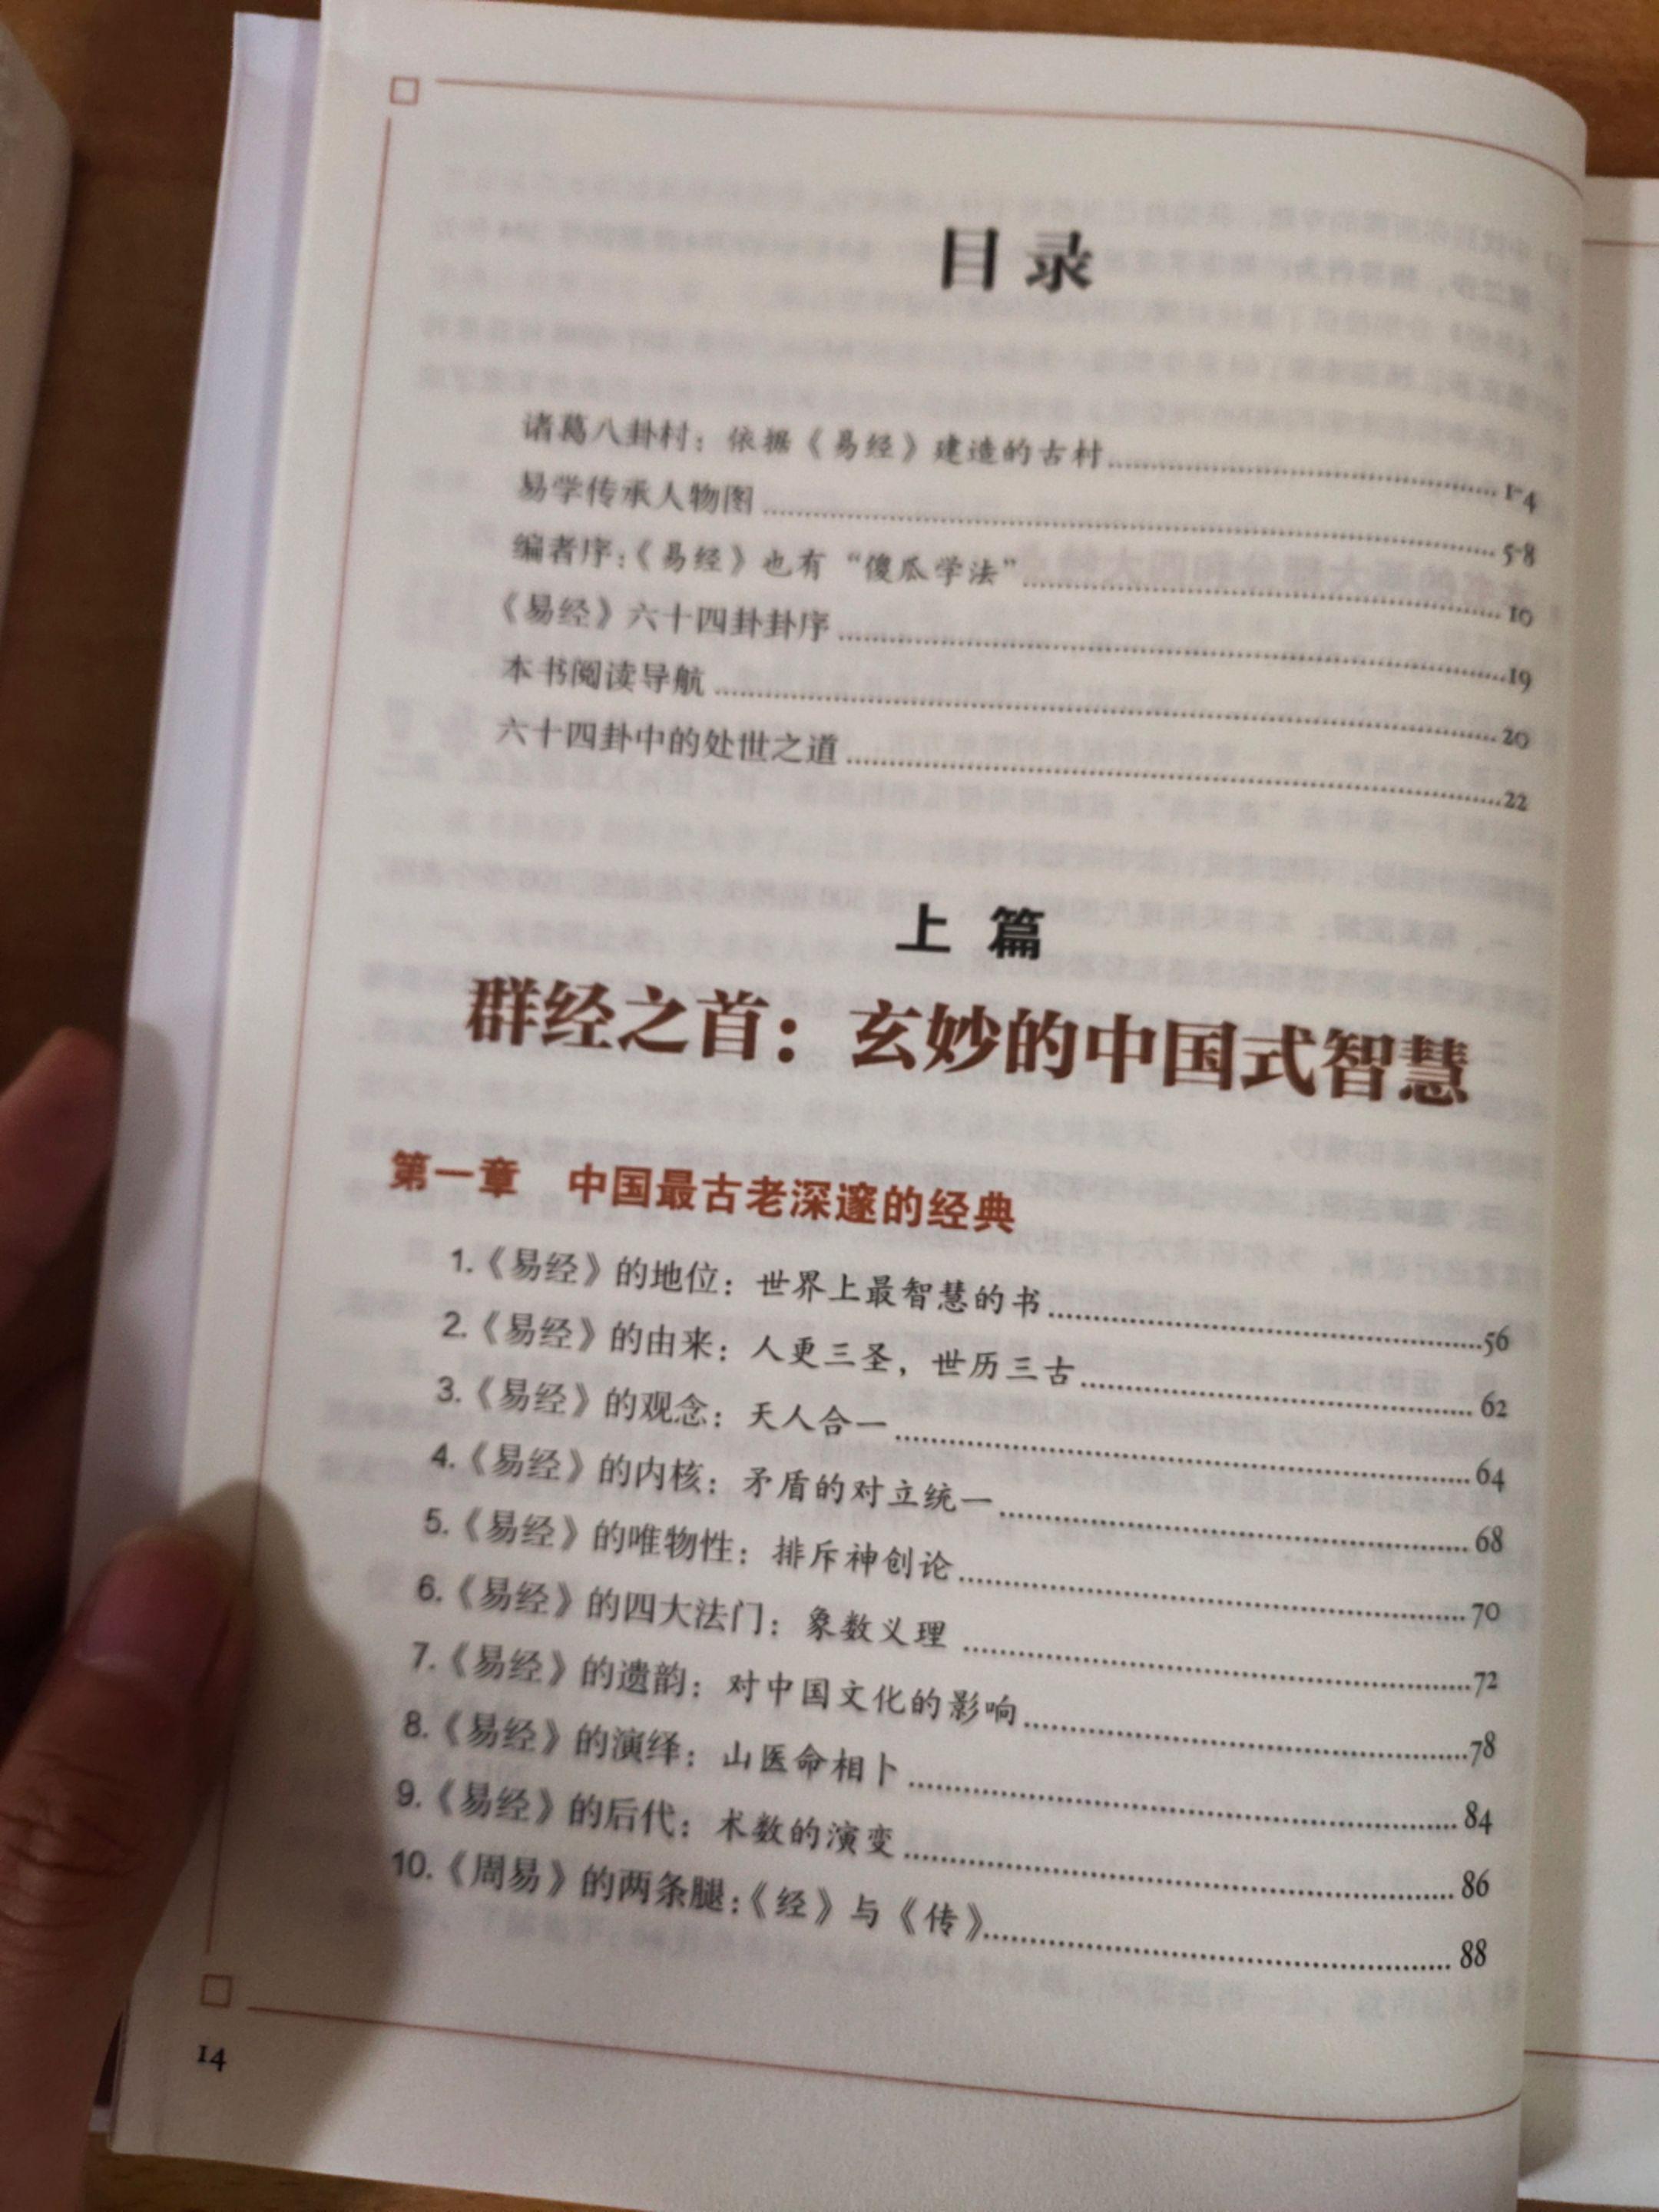 目录
诸葛八卦村：依据《易经》建造的古村1-4
易学传承人物图5-8
编者序：《易经》也有“傻瓜学法”10
《易经》六十四卦卦序19
本书阅读导航20
六十四卦中的处世之道22
上篇
群经之首：玄妙的中国式智慧
第一章 中国最古老深邃的经典
1.《易经》的地位：世界上最智慧的书56
2.《易经》的由来：人更三圣，世历三古62
3.《易经》的观念：天人合一64
4.《易经》的内核：矛盾的对立统一68
5.《易经》的唯物性：排斥神创论70
6.《易经》的四大法门：象数义理72
7.《易经》的遗韵：对中国文化的影响78
8.《易经》的演绎：山医命相卜84
9.《易经》的后代：术数的演变86
10.《周易》的两条腿：《经》与《传》88
14